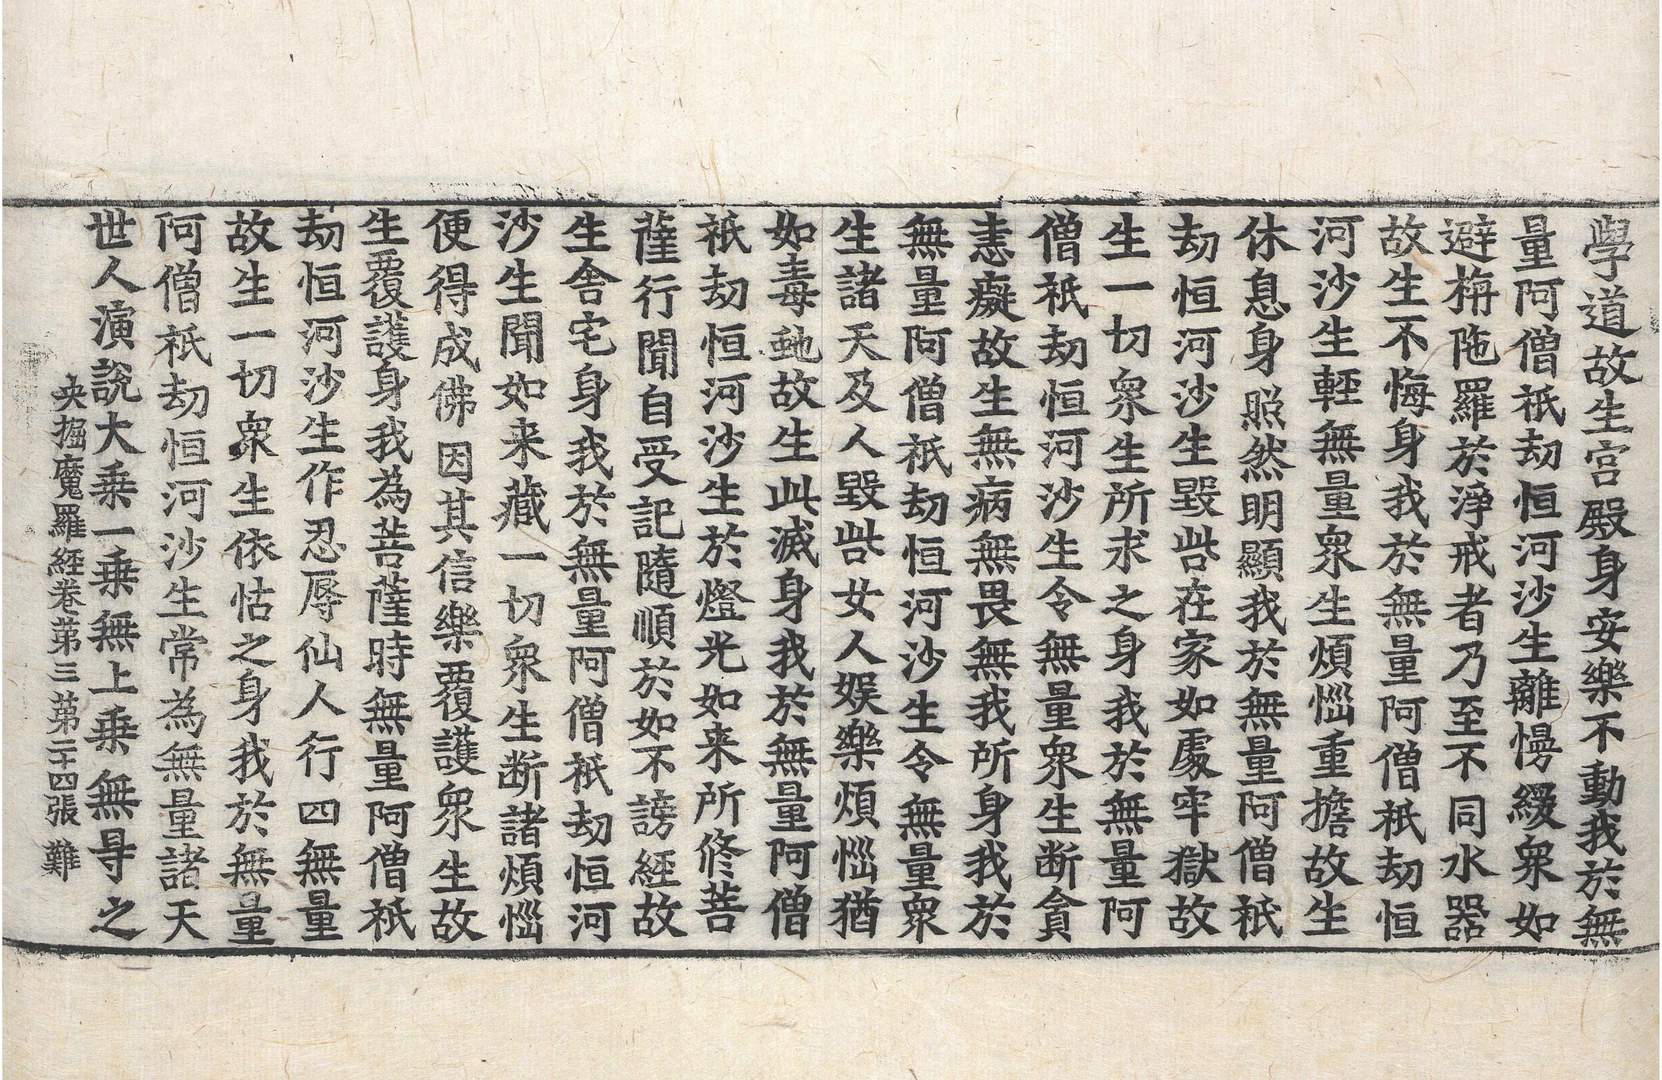 學道故生宮殿身安樂不動我於無
量阿僧祇劫恒河沙生離慢緩衆如
避栴陁羅於淨戒者乃至不同水器
故生不悔身我於無量阿僧祇劫恒
河沙生輕無量衆生煩惱重擔故生
休息身照然明顯我於無量阿僧祇
劫恒河沙生毀呰在家如處牢獄故
生一切衆生所求之身我於無量阿
僧祇劫恒河沙生令無量衆生断貪
恚癡故生無病無畏無我所身我於
無量阿僧祇劫恒河沙生令無量衆
生諸天及人毀呰女人娛樂煩惱猶
如毒虵故生此滅身我於無量阿僧
祇劫恒河沙生於燈光如来所修菩
薩行聞自受記隨順於如不謗經故
生舍宅身我於無量阿僧祇劫恒河
沙生聞如来藏一切衆生断諸煩惱
便得成佛因其信樂覆護衆生故
生覆護身我為菩薩時無量阿僧祇
劫恒河沙生作忍辱仙人行四無量
故生一切衆生依怙之身我於無量
阿僧祇劫恒河沙生常為無量諸天
世人演說大乗一乗無上乗無㝵之
央掘魔羅經卷第三 第二十四張 難